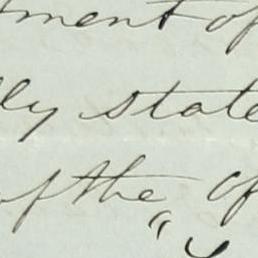 tment of
lly state
of the of